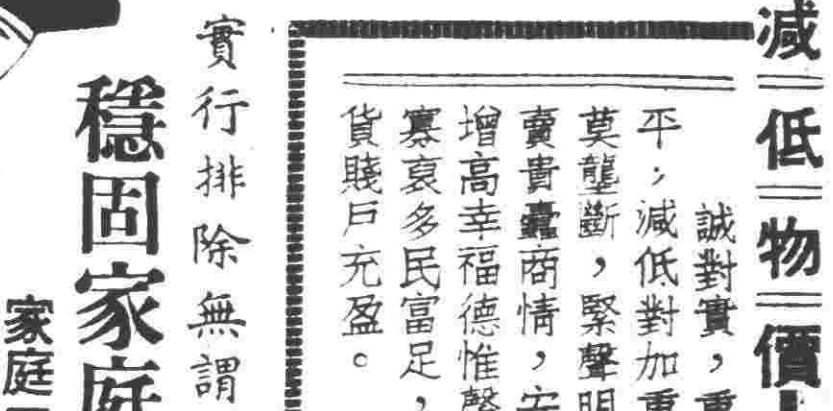 減低物價
誠對實，重
平；減低對加重
莫壟斷，緊聲明
賣貴蠹商情，安
增高幸福德惟馨
寡裒多民富足，
貨賤戶充盈。
實行排除無謂
穩固家庭
家庭